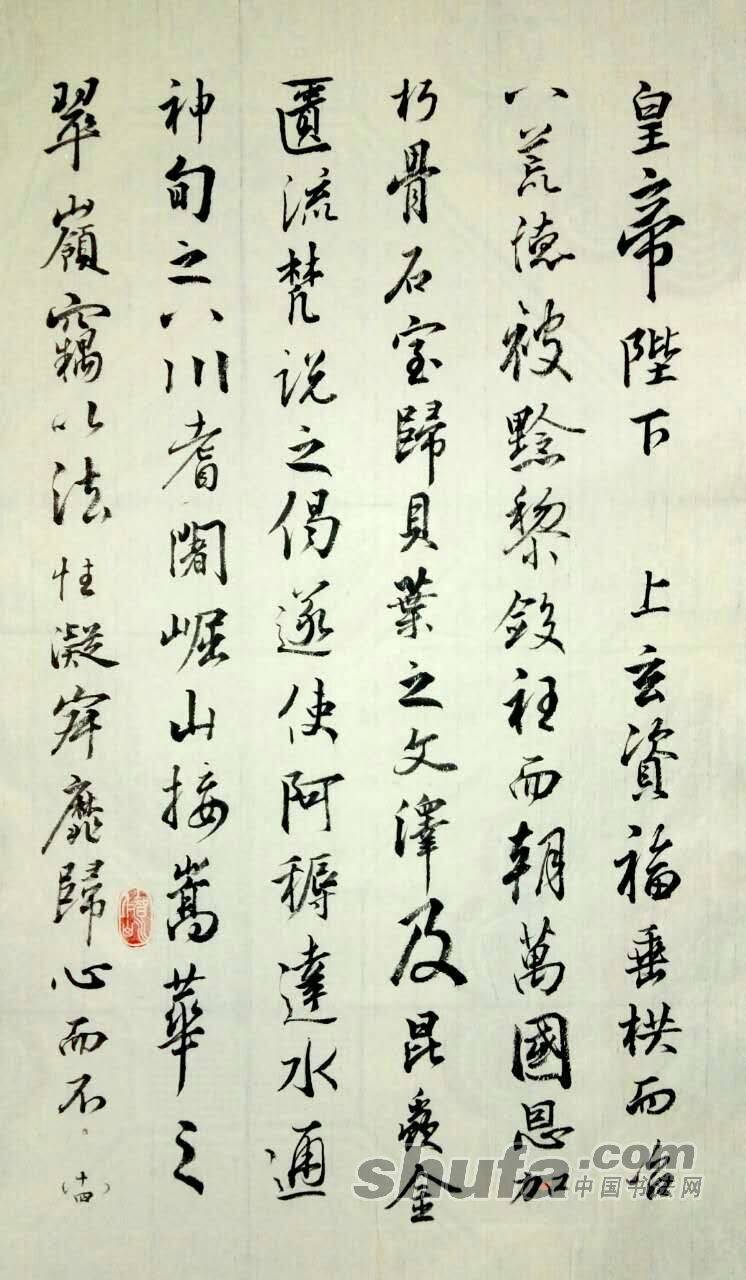 皇帝陛下　上玄資福垂拱而治
八荒德被黔黎斂衽而朝萬國恩加
朽骨石室歸貝葉之文澤及昆蟲金
匱流梵說之偈遂使阿耨達水通
神甸之八川耆闍崛山接嵩華之
翠嶺竊以法性凝寂靡歸心而不
(十四)
shufa.com
中国书法网